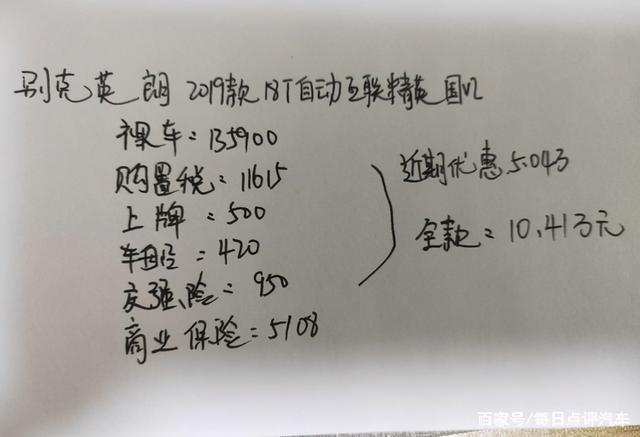 别克英朗 2019款 18T自动互联精英 国VI
裸车：135900
购置税：11615
上牌：500
车船：420
交强险：950
商业保险：5108
近期优惠5.04万
全款：10.41万元
百家号/每日点评汽车